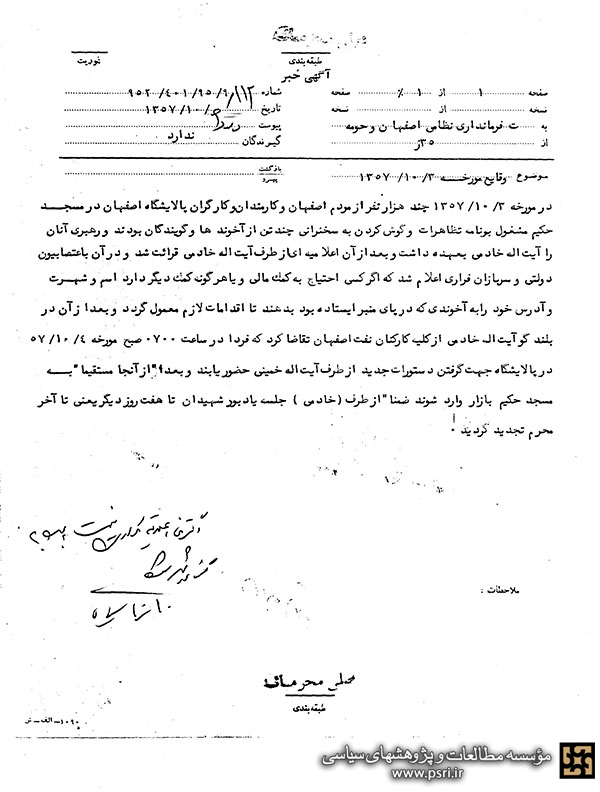 طبقه‌بندی
فوریت
آگهی خبر
صفحه ۱ از ۱٪ صفحه
شماره ۹۵۲/۴۰۱/۹۵/۹/۱۱۲
نسخه از نسخه
تاریخ ۱۳۵۷/۱۰/
به ت فرمانداری نظامی اصفهان و حومه
پیوست ندارد
از ۳۵ز
گیرندگان
موضوع وقایع مورخه ۱۳۵۷/۱۰/۳
بازگشت
پیرو
در مورخه ۱۳۵۷/۱۰/۳ چند هزار نفر از مردم اصفهان و کارمندان و کارگران پالایشگاه اصفهان در مسجد
حکیم مشغول بونامه تظاهرات و گوش کردن به سخنرانی چند تن از آخوند ها و گویندگان بودند و رهبری آنان
را آیت اله خادمی بعهده داشت و بعد از آن اعلامیه ای از طرف آیت اله خادمی قرائت شد و در آن باعتصابیون
دولتی و سربازان فراری اعلام شد که اگر کسی احتیاج به کمک مالی و یا هرگونه کمک دیگر دارد اسم و شهرت
و آدرس خود را به آخوندی که در پای منبر ایستاده بود بدهند تا اقدامات لازم معمول گردد و بعد از آن در
بلند گو آیت اله خادمی از کلیه کارکنان نفت اصفهان تقاضا کرد که فردا در ساعت ۰۷۰۰ صبح مورخه ۵۷/۱۰/۴
در پالایشگاه جهت گرفتن دستورات جدید از طرف آیت اله خمینی حضور یابند و بعد از آنجا مستقیما" بـه
مسجد حکیم بازار وارد شوند ضمنا" از طرف (خادمی) جلسه یاد بود شهیدان تا هفت روز دیگر یعنی تا آخر
محرم تجدید گردید .
ملاحظات :
خیلی محرمانـه
طبقه بندی
۱۰۶۰-الف-ش
مؤسسه مطالعات و پژوهشهای سیاسی
www.psri.ir